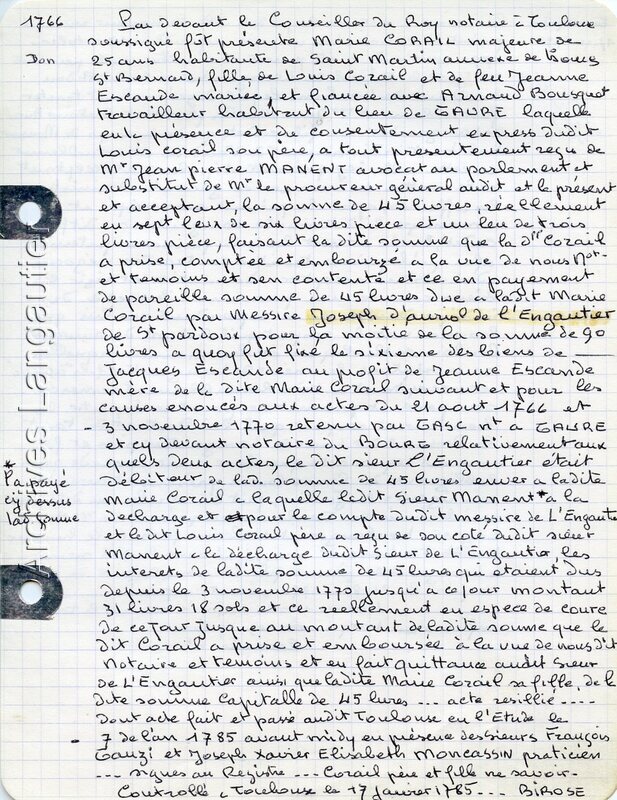 1766
Don
Par devant le Conseiller du Roy notaire à Toulouse
soussigné fût présente Marie CORAIL majeure de
25 ans habitante de Saint Martin annexe de
St Bernard, fille de Louis Corail et de feu Jeanne
Escande mariée, et fiancée aux Arnaud Bousquet
travailleur habitant du lieu de GAURE laquelle
en la présence et du consentement express dudit
Louis Corail son père, a tout présentement reçu de
Mr Jean pierre MANENT avocat au parlement et
substitut de Mr le procureur général audit et le présent
et acceptant, la somme de 45 livres, réellement
en sept leux de six livres piece et un leu de trois
livres pièce, faisant la dite somme que la dlle Corail
a prise, comptée et embourzé a la vue de nous Not.
et temoins et s'en contenté et ce en payement
de pareille somme de 45 livres due a ladit Marie
Corail par Messire Joseph D'auriol de l'Engautier
de St pardoux pour la moitie de la somme de 90
livres a quoy fut fixé le sixieme des biens de
Jacques Escande au profit de Jeanne Escande
mère de la dite Marie Corail suivant et pour les
causes enoncés aux actes du 21 aout 1766 et
- 3 novembre 1770 retenu par GASC nt a GAURE
et cy devant notaire du BOURG relativement aux
quels deux actes, le dit sieur L'Engautier était
Débiteur de lad. somme de 45 livres enver a ladite
Marie Corail a laquelle ladit Sieur Manent * a la
decharge et pour le compte dudit messire de L'Engautie
et ledit Louis Corail père a reçu de son coté dudit sieur
Manent a la décharge dudit Sieur de L'Engautier, les
interets de ladite somme de 45 livres qui étaient dus
depuis le 3 novembre 1770 jusqu'a ce jour montant
31 livres 18 sols et ce reellement en espece de cours
De ce Jour Jusque au montant de ladite soume que le
dit Corail a prise et emboursée à la vue de nous dit
Notaire et temoins et en fait quittance audit Sieur
de L'Engautier ainsi que ladite Marie Corail sa fille, de la
dite somme Capitalle de 45 livres --- acte resillié ----
Dont acte fait et passé audit Toulouse en l'Etude le
- 7 de l'an 1785 avant midy en présence des sieurs François
Gauzi et Joseph Xavier Elisabeth MONCASSIN praticien
--- signés au Registre --- Corail père et fille ne savoir -
Controllé a Toulouse le 17 Janvier 1785 --- BIROSE
* l'a payé
cy dessus
lad. somme
Archives Langautier